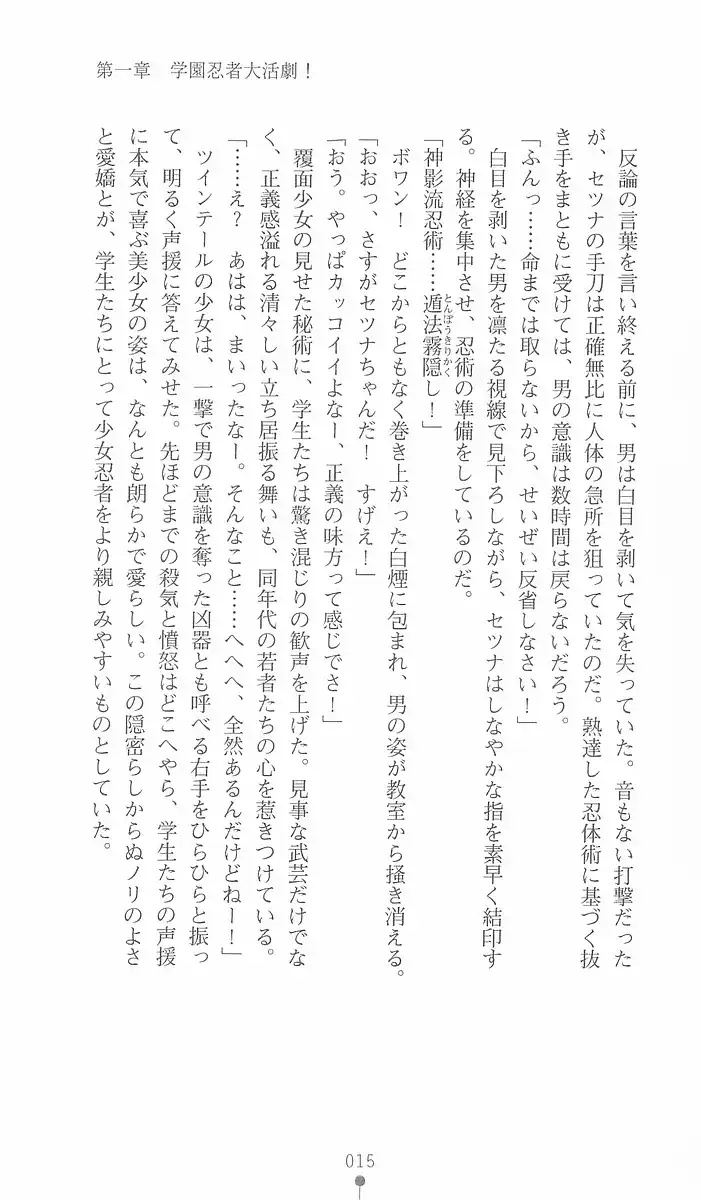 第一章　学園忍者大活劇！
　反論の言葉を言い終える前に、男は白目を剥いて気を失っていた。音もない打撃だった
が、セツナの手刀は正確無比に人体の急所を狙っていたのだ。熟達した忍体術に基づく抜
き手をまともに受けては、男の意識は数時間は戻らないだろう。
「ふんっ……命までは取らないから、せいぜい反省しなさい！」
　白目を剥いた男を凛たる視線で見下ろしながら、セツナはしなやかな指を素早く結印す
る。神経を集中させ、忍術の準備をしているのだ。
「神影流忍術……遁法霧隠し！」
とんぽうきりかく
　ボワン！　どこからともなく巻き上がった白煙に包まれ、男の姿が教室から掻き消える。
「おおっ、さすがセツナちゃんだ！　すげえ！」
「おう。やっぱカッコイイよなー、正義の味方って感じでさ！」
　覆面少女の見せた秘術に、学生たちは驚き混じりの歓声を上げた。見事な武芸だけでな
く、正義感溢れる清々しい立ち居振る舞いも、同年代の若者たちの心を惹きつけている。
「……え？　あはは、まいったなー。そんなこと……へへへ、全然あるんだけどねー！」
　ツインテールの少女は、一撃で男の意識を奪った凶器とも呼べる右手をひらひらと振っ
て、明るく声援に答えてみせた。先ほどまでの殺気と憤怒はどこへやら、学生たちの声援
に本気で喜ぶ美少女の姿は、なんとも朗らかで愛らしい。この隠密らしからぬノリのよさ
と愛嬌とが、学生たちにとって少女忍者をより親しみやすいものとしていた。
015